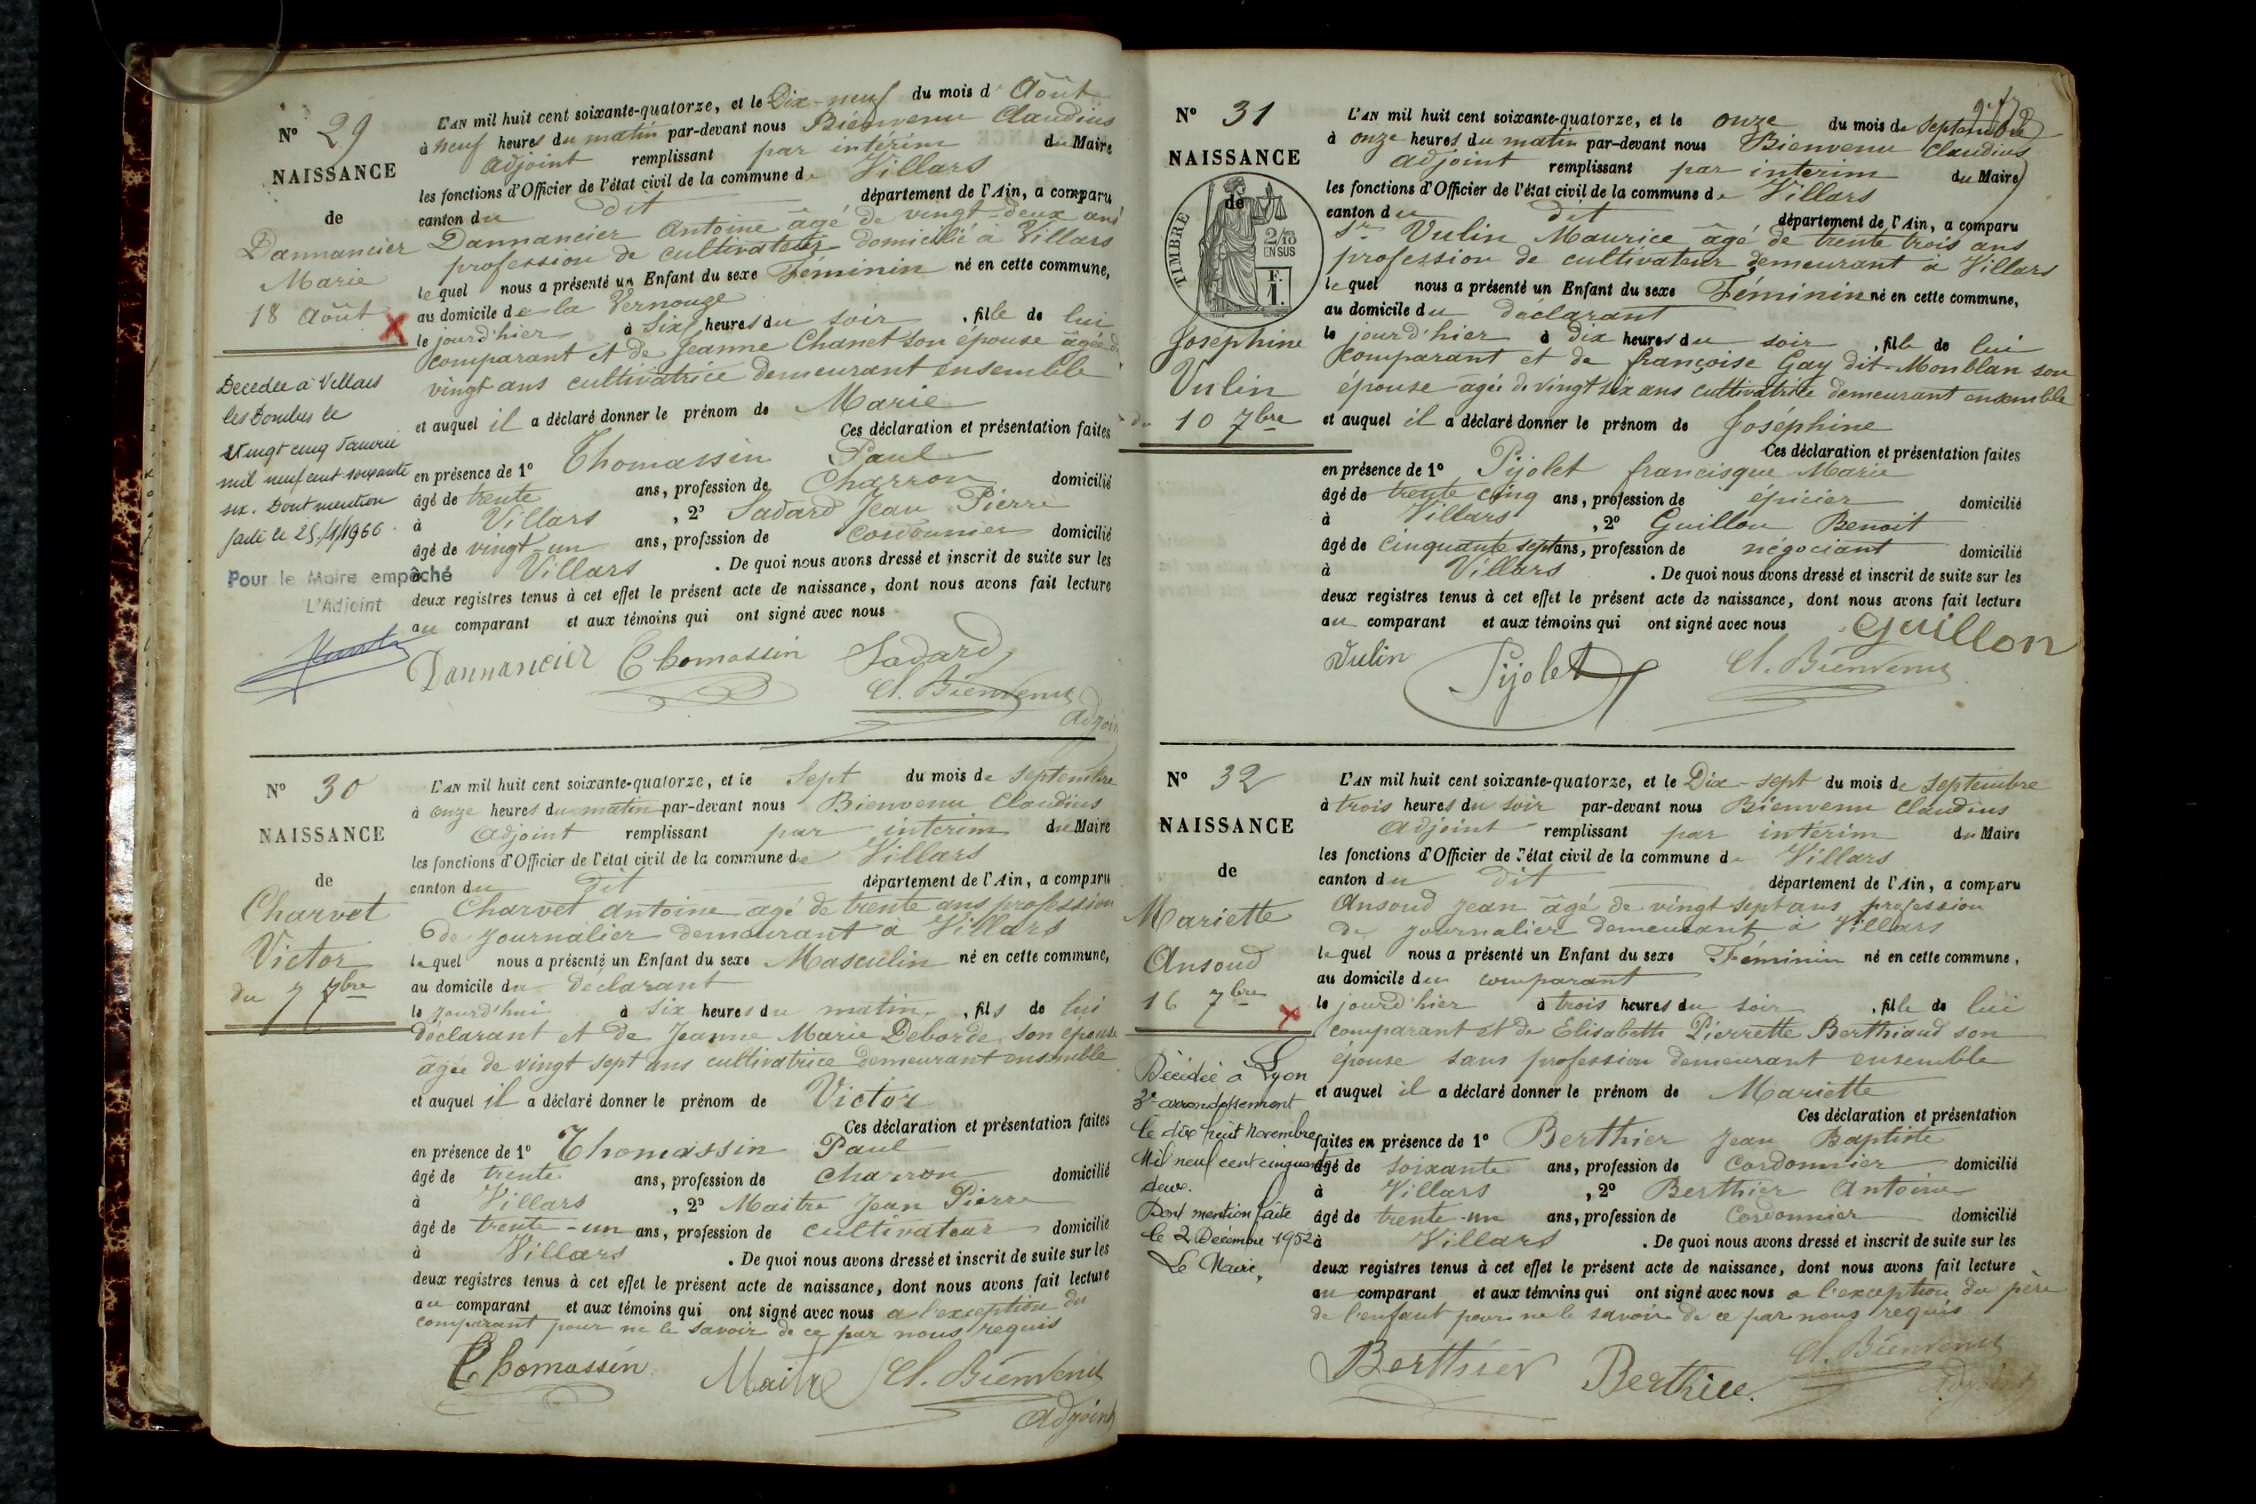 N° 29
NAISSANCE
de
Dannancier
Marie
18 Août
Décédée à Villars
les Dombes le
Vingt cinq Janvier
mil neuf cent soixante
six. Dont mention
faite le 25/1/1966
Pour le Maire empêché
L'Adjoint
L'AN mil huit cent soixante-quatorze, et le Dix-neuf du mois d'Août
à neuf heures du matin par-devant nous Bienvenu Claudius
adjoint remplissant par intérim du Maire
les fonctions d'Officier de l'état civil de la commune de Villars
canton du dit département de l'Ain, a comparu
Dannancier Antoine âgé de vingt-deux ans
profession de cultivateur domicilié à Villars
lequel nous a présenté un Enfant du sexe Féminin né en cette commune,
au domicile de la Vernouze
le jourd'hier à Six heures du soir, fille de lui
comparant et de Jeanne Chanet son épouse âgée de
vingt ans cultivatrice demeurant ensemble
et auquel il a déclaré donner le prénom de Marie
Ces déclaration et présentation faites
en présence de 1° Thomassin Paul
âgé de trente ans, profession de Charron domicilié
à Villars, 2° Sadard Jean Pierre
âgé de vingt-un ans, profession de cordonnier domicilié
à Villars. De quoi nous avons dressé et inscrit de suite sur les
deux registres tenus à cet effet le présent acte de naissance, dont nous avons fait lecture
au comparant et aux témoins qui ont signé avec nous
Dannancier Thomassin Sadard
Cl. Bienvenu
adjoint
N° 30
NAISSANCE
de
Charvet
Victor
du 7 7bre
L'AN mil huit cent soixante-quatorze, et le Sept du mois de Septembre
à onze heures du matin par-devant nous Bienvenu Claudius
adjoint remplissant par intérim du Maire
les fonctions d'Officier de l'état civil de la commune de Villars
canton du dit département de l'Ain, a comparu
Charvet Antoine âgé de trente ans profession
de journalier demeurant à Villars
lequel nous a présenté un Enfant du sexe Masculin né en cette commune,
au domicile du déclarant
le jourd'hui à Six heures du matin, fils de lui
déclarant et de Jeanne Marie Deborde son épouse
âgée de vingt sept ans cultivatrice demeurant ensemble
et auquel il a déclaré donner le prénom de Victor
Ces déclaration et présentation faites
en présence de 1° Thomassin Paul
âgé de trente ans, profession de charron domicilié
à Villars, 2° Maitre Jean Pierre
âgé de trente-un ans, profession de cultivateur domicilié
à Villars. De quoi nous avons dressé et inscrit de suite sur les
deux registres tenus à cet effet le présent acte de naissance, dont nous avons fait lecture
au comparant et aux témoins qui ont signé avec nous a l'exception du
comparant pour ne le savoir de ce par nous requis
Thomassin Maitre Cl. Bienvenu
adjoint
N° 31
NAISSANCE
de
TIMBRE
2/10
EN SUS
F.
1.
Joséphine
Vulin
du 10 7bre
L'AN mil huit cent soixante-quatorze, et le onze du mois de Septembre
à onze heures du matin par-devant nous Bienvenu Claudius
adjoint remplissant par interim du Maire
les fonctions d'Officier de l'état civil de la commune de Villars
canton du dit département de l'Ain, a comparu
Sr Vulin Maurice âgé de trente trois ans
profession de cultivateur demeurant à Villars
lequel nous a présenté un Enfant du sexe Féminin né en cette commune,
au domicile du déclarant
le jourd'hier à dix heures du soir, fille de lui
comparant et de françoise Gay dit-Monblan son
épouse âgée de vingt six ans cultivatrice demeurant ensemble
et auquel il a déclaré donner le prénom de Joséphine
Ces déclaration et présentation faites
en présence de 1° Pijolet francisque Marie
âgé de trente cinq ans, profession de épicier domicilié
à Villars, 2° Guillon Benoit
âgé de cinquante sept ans, profession de négociant domicilié
à Villars. De quoi nous avons dressé et inscrit de suite sur les
deux registres tenus à cet effet le présent acte de naissance, dont nous avons fait lecture
au comparant et aux témoins qui ont signé avec nous Guillon
Vulin Pijolet Cl. Bienvenu
N° 32
NAISSANCE
de
Mariette
Ansoud
16 7bre
Décédée à Lyon
3e arrondissement
le dix huit Novembre
Mil neuf cent cinquante
deux.
Dont mention faite
le 2 Décembre 1952
Le Maire,
L'AN mil huit cent soixante-quatorze, et le Dix-sept du mois de Septembre
à trois heures du soir par-devant nous Bienvenu Claudius
adjoint remplissant par intérim du Maire
les fonctions d'Officier de l'état civil de la commune de Villars
canton du dit département de l'Ain, a comparu
Ansoud Jean âgé de vingt sept ans profession
de journalier demeurant à Villars
lequel nous a présenté un Enfant du sexe Féminin né en cette commune,
au domicile du comparant
le jourd'hier à trois heures du soir, fille de lui
comparant et de Elisabeth Pierrette Berthiaud son
épouse sans profession demeurant ensemble
et auquel il a déclaré donner le prénom de Mariette
Ces déclaration et présentation
faites en présence de 1° Berthier Jean Baptiste
âgé de soixante ans, profession de cordonnier domicilié
à Villars, 2° Berthier Antoine
âgé de trente-un ans, profession de cordonnier domicilié
à Villars. De quoi nous avons dressé et inscrit de suite sur les
deux registres tenus à cet effet le présent acte de naissance, dont nous avons fait lecture
au comparant et aux témoins qui ont signé avec nous a l'exception du père
de l'enfant pour ne le savoir de ce par nous requis
Berthier Berthier Cl. Bienvenu
adjoint